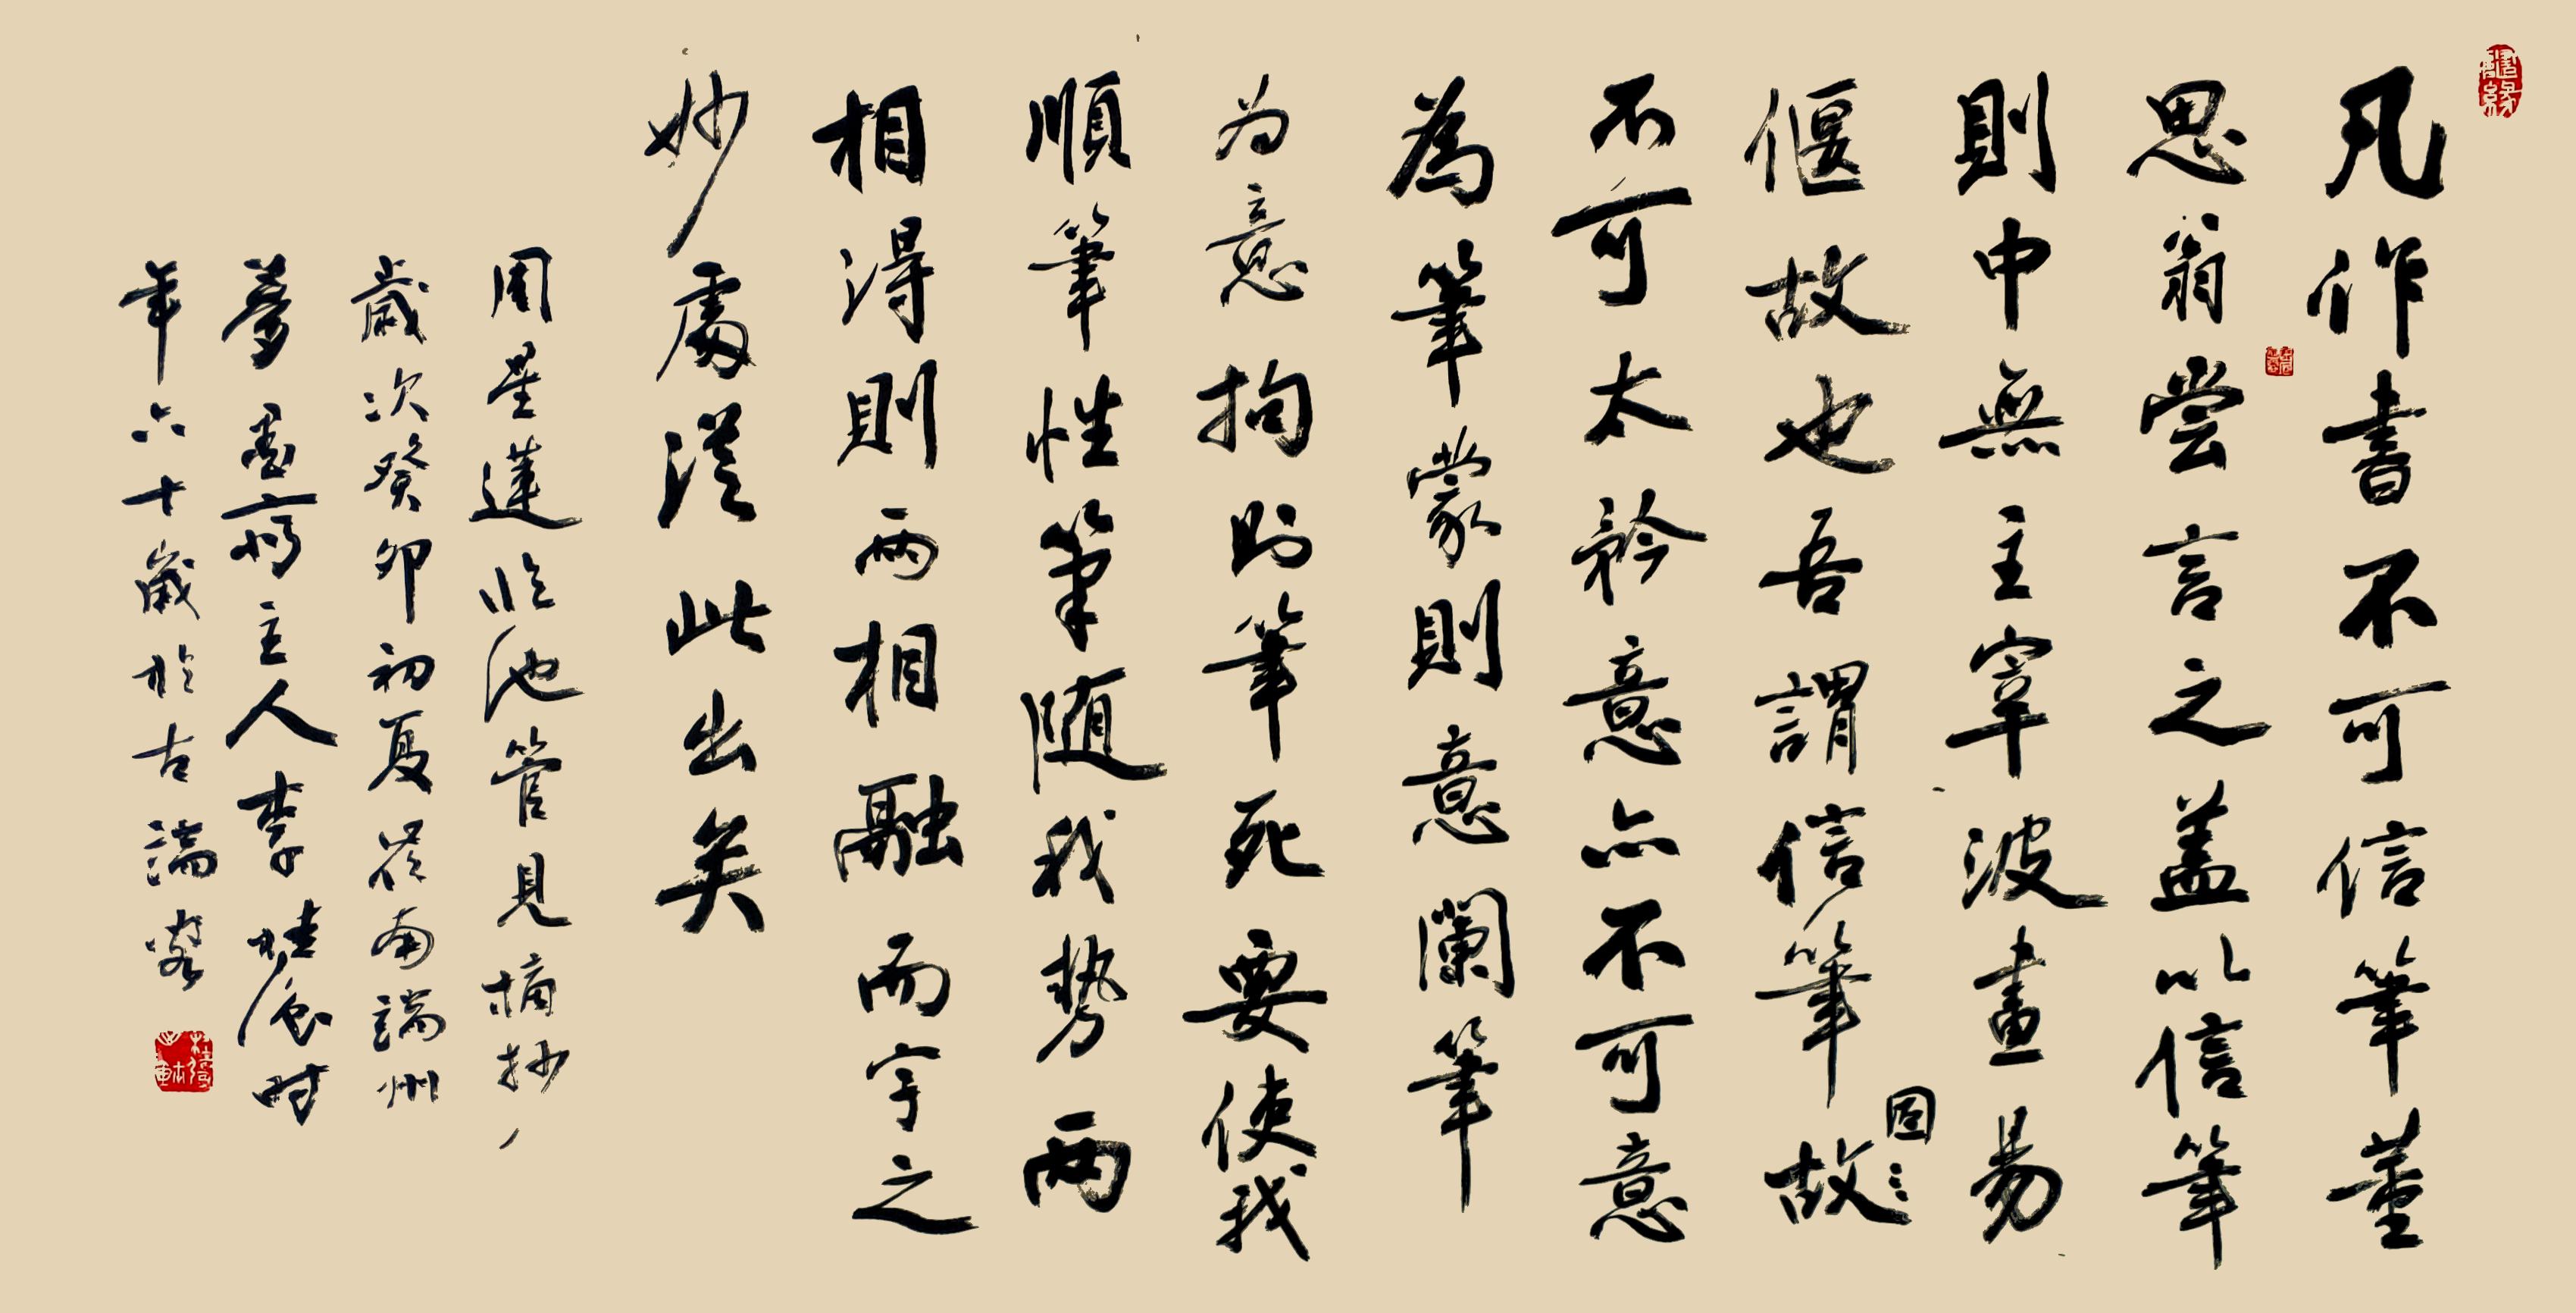 書緣
凡作書不可信筆董
思翁尝言之盖以信筆
則中無主宰波畫易
偃故也吾謂信筆故
固
不可太矜意亦不可意
為筆蒙則意闌筆
为意拘则筆死要使我
順筆性筆随我勢两
相得則兩相融而字之
妙處從此出矣
周星蓮临池管見摘抄
歲次癸卯初夏於南端州
夢墨齋主人李桂时
年六十歲於古端